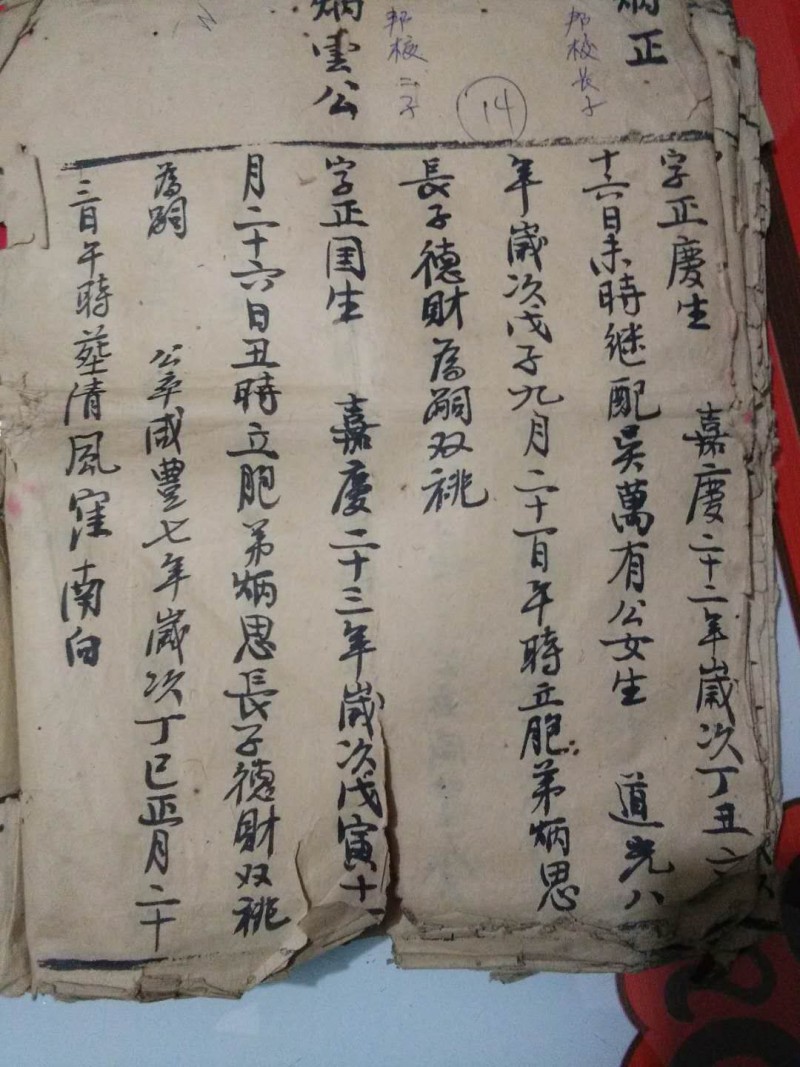 炳正
邦校長子
字正慶生　嘉慶二十二年歲次丁丑六
十六日未時继配吴萬有公女生　道光八
年歲次戊子九月二十一日午時立胞弟炳思
長子德財為嗣双祧
14
炳雲公
邦校二子
字正国生　嘉慶二十三年歲次戊寅十一
月二十六日丑時立胞弟炳思長子德財双祧
為嗣　公卒咸豐七年歲次丁巳正月二十
三日午時塟清風窪南向